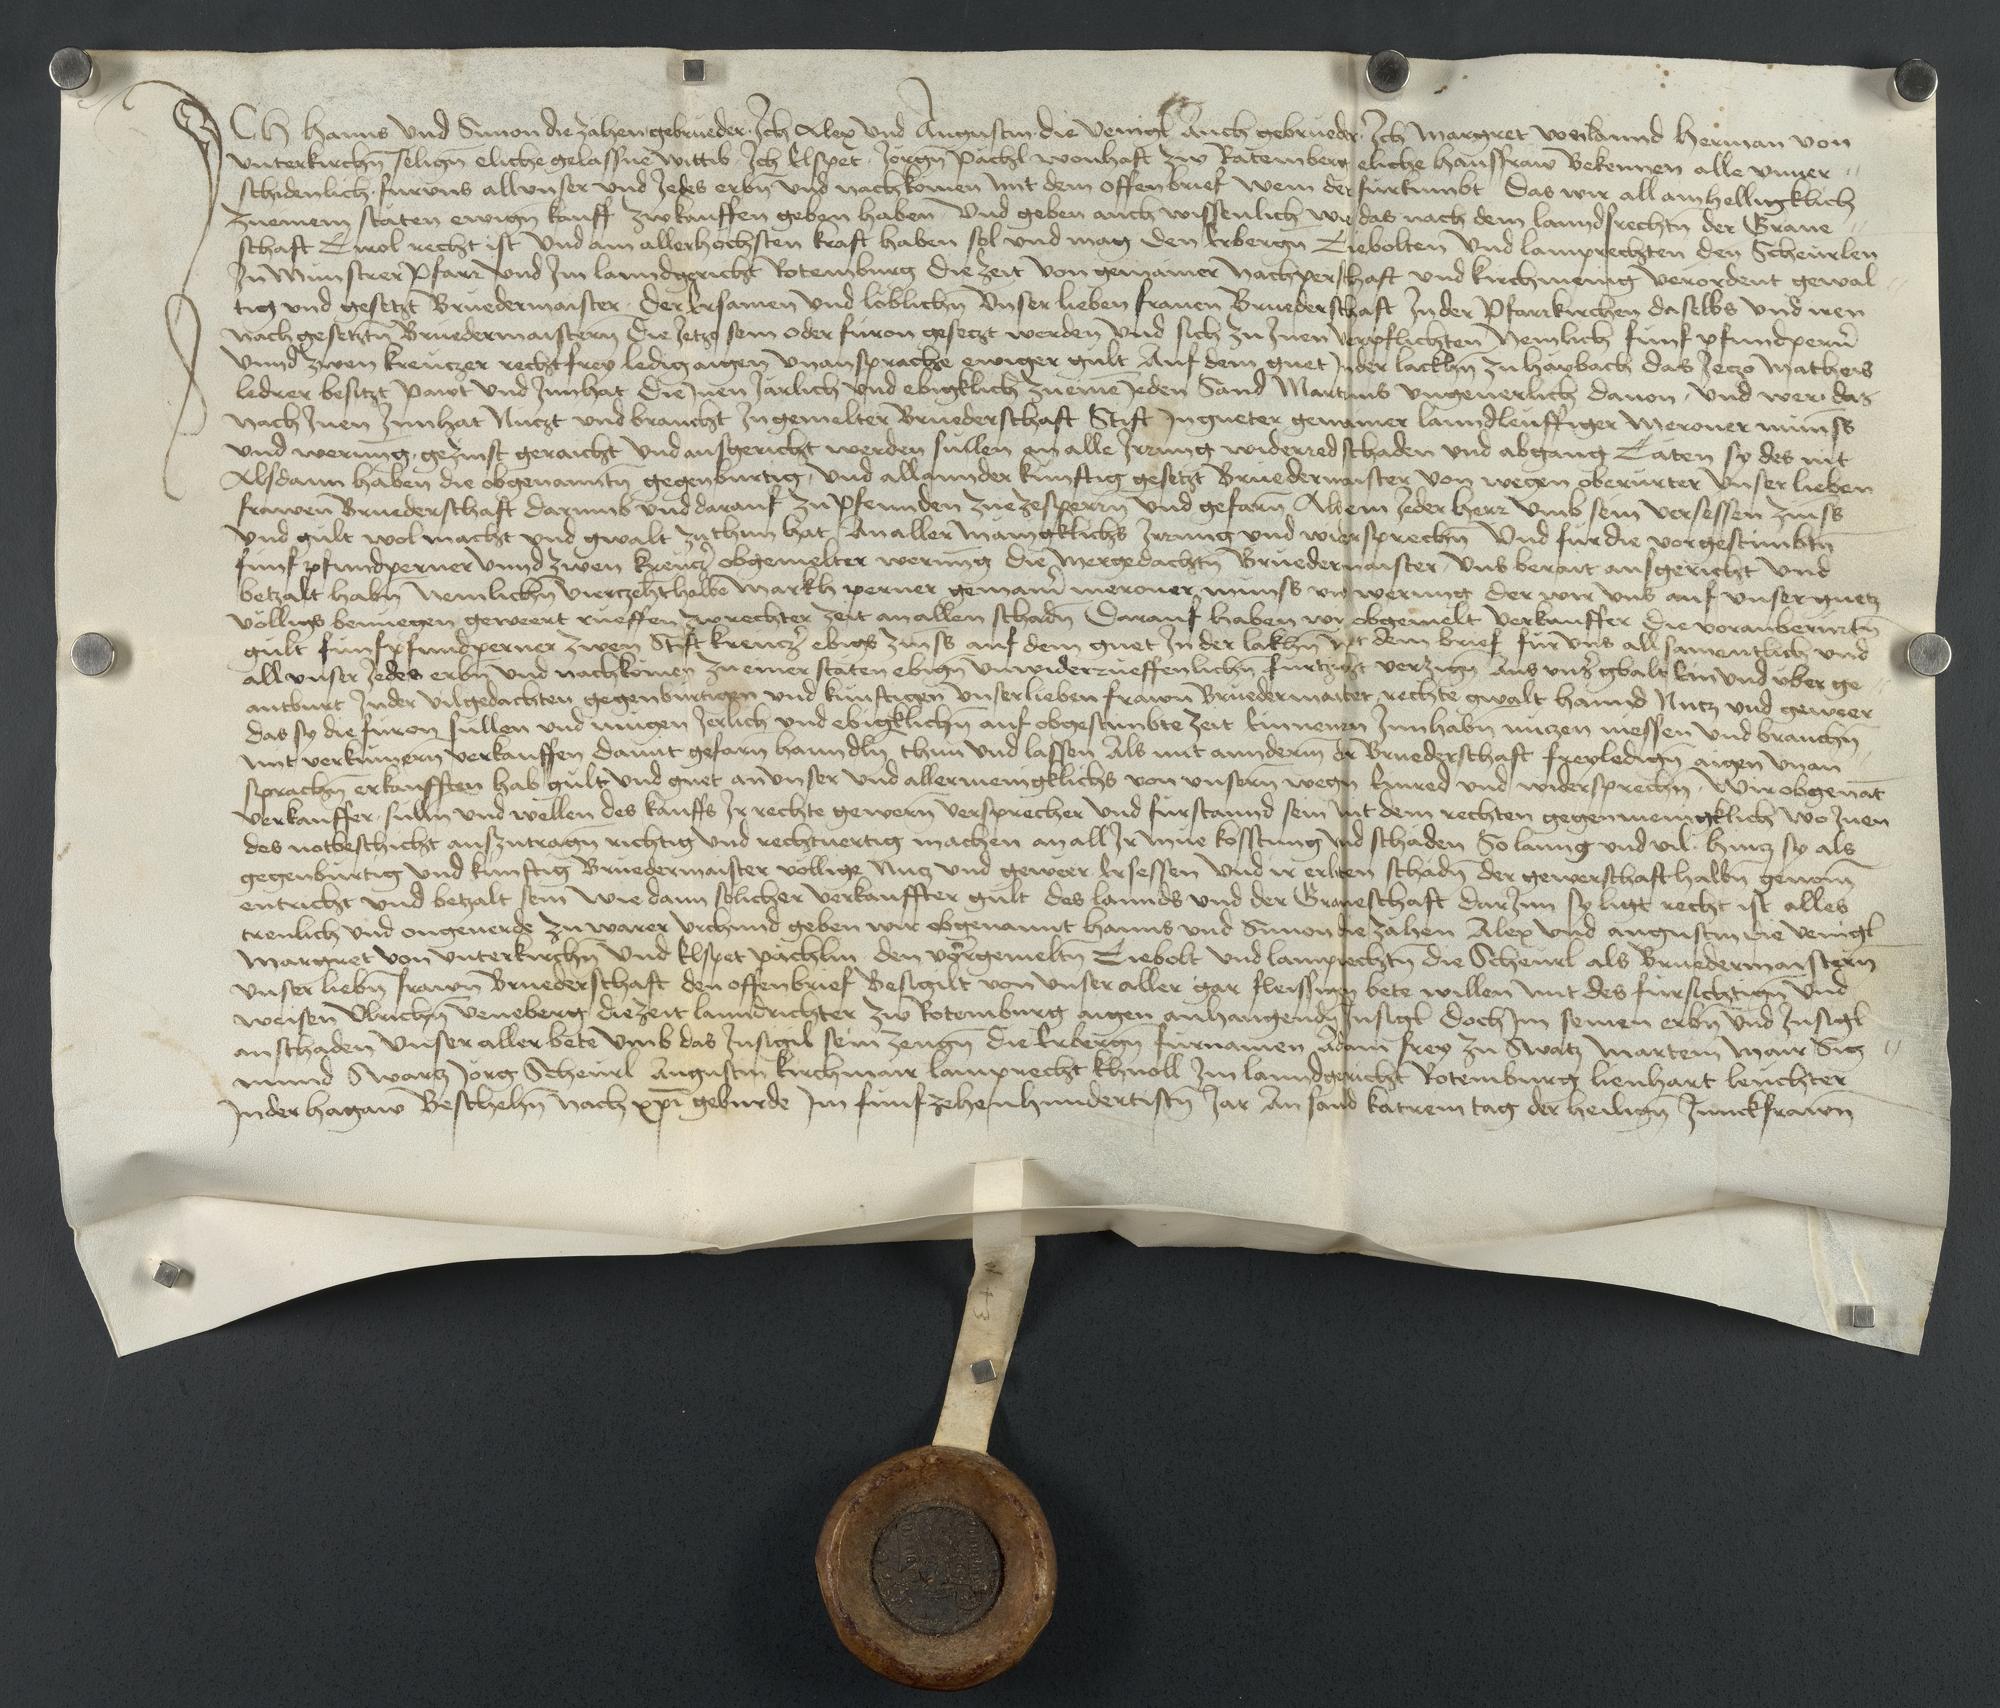 ICh Hanns und Simon die zähen gebrueder. Ich Alex und Augustin die Venigl Auch gebrueder. Ich Margret weylannd Herman von
unterkirchn seligñ eliche gelassne wittib. Ich Elspet Jörgñ Pächl wonhaft zw Ratemberg eliche hausfraw Bekennen alle unver
schidenlich für uns all unser und Jedes erbñ und nachkomen mit dem offen brief wem der fürkumbt Das wir all ainhelligklich
zu einem stäten ewign kauff zwkauffen geben haben Und geben auch wissenlich wie das nach dem lanndsrechtñ der Grave
schaft Tirol recht ist Und am allerhöchsten kraft haben sol und mag Den Erbergñ Tiebolten Und lamprechten den Scheurlen
In Münstrer Pfarr Und Im lanndgericht Rotemburg die zeit von gemainer Nachperschaft und kirchmenig verordent gewal
tig und gesetzt Bruedermaister Der Ersamen und löblichñ Unser lieben frauen Bruederschaft In der Pfarrkirchen daselbs und iren
nachgesetztñ Bruedermaistern die Jetzo sein oder füron gesetzt werden Und sich zu Inen verpflichten Nemlich fünf pfund perñ
unnd zwen kreuczer recht frey ledig aigen unansprache ewiger gült Auf dem guet In der lackhñ zu Harbach das Jeczo Matheis
ledrer besitzt pawt und Innhat Die Inen Järlich und ebigklich zu eine Jeden Sand Martins ungeverlich davon, und wer das
nach Inen Innhat Nuczt und braucht In gemelter Bruederschaft Stift In gueter gemainer lanndleuffiger Meroner münss
und werung, gezinst geraicht Und ausgericht werden sullen an alle Irrung widerred schaden und abgang Täten sy des nit
Alsdann haben die obgenantñ gegenburtig, und all annder künftig gesetzt Bruedermaister von wegen oberürter Unser lieben
frawen Bruederschaft darumb und darauf zu Pfennden zuezesperrñ und gefarñ Als ein Jeder Herr Umb sein versessen zinss
Und gült wol macht und gwalt zuthun hat An aller mänigklichs Irrung und widersprechñ Und für die vorgestimbtñ
fünf pfund perner unnd zwen kreuczr obgemelter werung die mergedachtñ Bruedermaister, Uns berait ausgericht Und
betzalt habñ Nemlichñ Vierczehnthalbe Markh perner gemainr meroner münss und werung der wir uns auf unser guetz
völligs benuegen geweert rueffen zw rechter zeit an allen schadñ Darauf haben wir obgemelt verkauffer die vorauberürtñ
gült fünf pfundperner zwen Stift kreuczr ebigs zinss auf dem guet In der lakhñ mit dem brief für uns all samentlich und
all unser Jedes erbñ und nachkomen zu einer stäten ebign unwiderrueffenlichñ fürtzicht verzign Aus unsr gbalt Ein und über ge
antburt In der vilgedachten gegenbürtigen und künftigen unser lieben frawñ Bruedermaister rechte gwalt hannd Nutz und geweer
das sy die füron sullen und mügen Jerlich und ebigklichñ auf obgestimbte zeit Einnemen Innhabñ nuczen niessen und brauchñ
mit verkümern verkauffen damit gefarñ hanndln thun und lassen Als mit anndern der Bruederschaft frey ledign aigen unan
sprachñ erkaufften hab gült und guet an unser und allermenigklichs von unsern wegñ Einred und widersprechñ. Wir obgenat
verkauffer sulln und wellen des kauffs Ir rechte gewern versprecher und fürstannd sein mit dem rechten gegen menigklich wo Inen
des notbeschicht auszutragñ richtig und rechtvertig machen an all Ir mue kosstung und schaden So lanng und vil hincz sy als
gegenbürtig und künftig Bruedermaister völlige Nucz und geweer Ersessen Und ir erliten schadñ der gewerschaft halbñ genomñ
entricht und betzalt sein wie dann solicher verkauffter gült des lannds und der Graveschaft darInn sy ligt recht ist alles
treulich und ongeverde zu warer urchund geben wir obgenannt Hanns und Simon die zähen Alex und augustin die venigl
Margret von unterkirchñ und Elspet pächlin den vorgemeltñ Tiebolt und lamprechtñ die Scheurl als Bruedermaistern
unser liebñ frawñ Bruederschaft den offenbrief Besigilt von unser aller gar fleissign bete willen mit des fürsichtign und
weisen Ulrichñ Veneberg die zeit lanndrichter zw Rotemburg aigen anhangendñ Insigl doch Im seinen erbñ und Insigl
an schaden Unser aller bete umb das Insigil sein zeugñ die Erbergñ fürnamen Adam frey zu Swatz Martein Mair Sig
mund Swarcz Jörg Scheurl Augustin kirchmair lamprecht khnoll Im lanndgericht Rotemburg lienhart leuchter
In der hagaw Beschehñ nach xpi geburde Im fünfzehenhundertistñ Jar An sand katrein tag der heiligñ Junckfrawñ
N 43